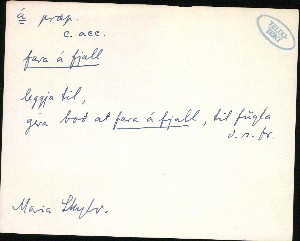 á præp.
c. acc.
fara á fjall
leggja til,
gera boð at fara á fjall, til fugla
v. s. fr.
Maria Skylv.